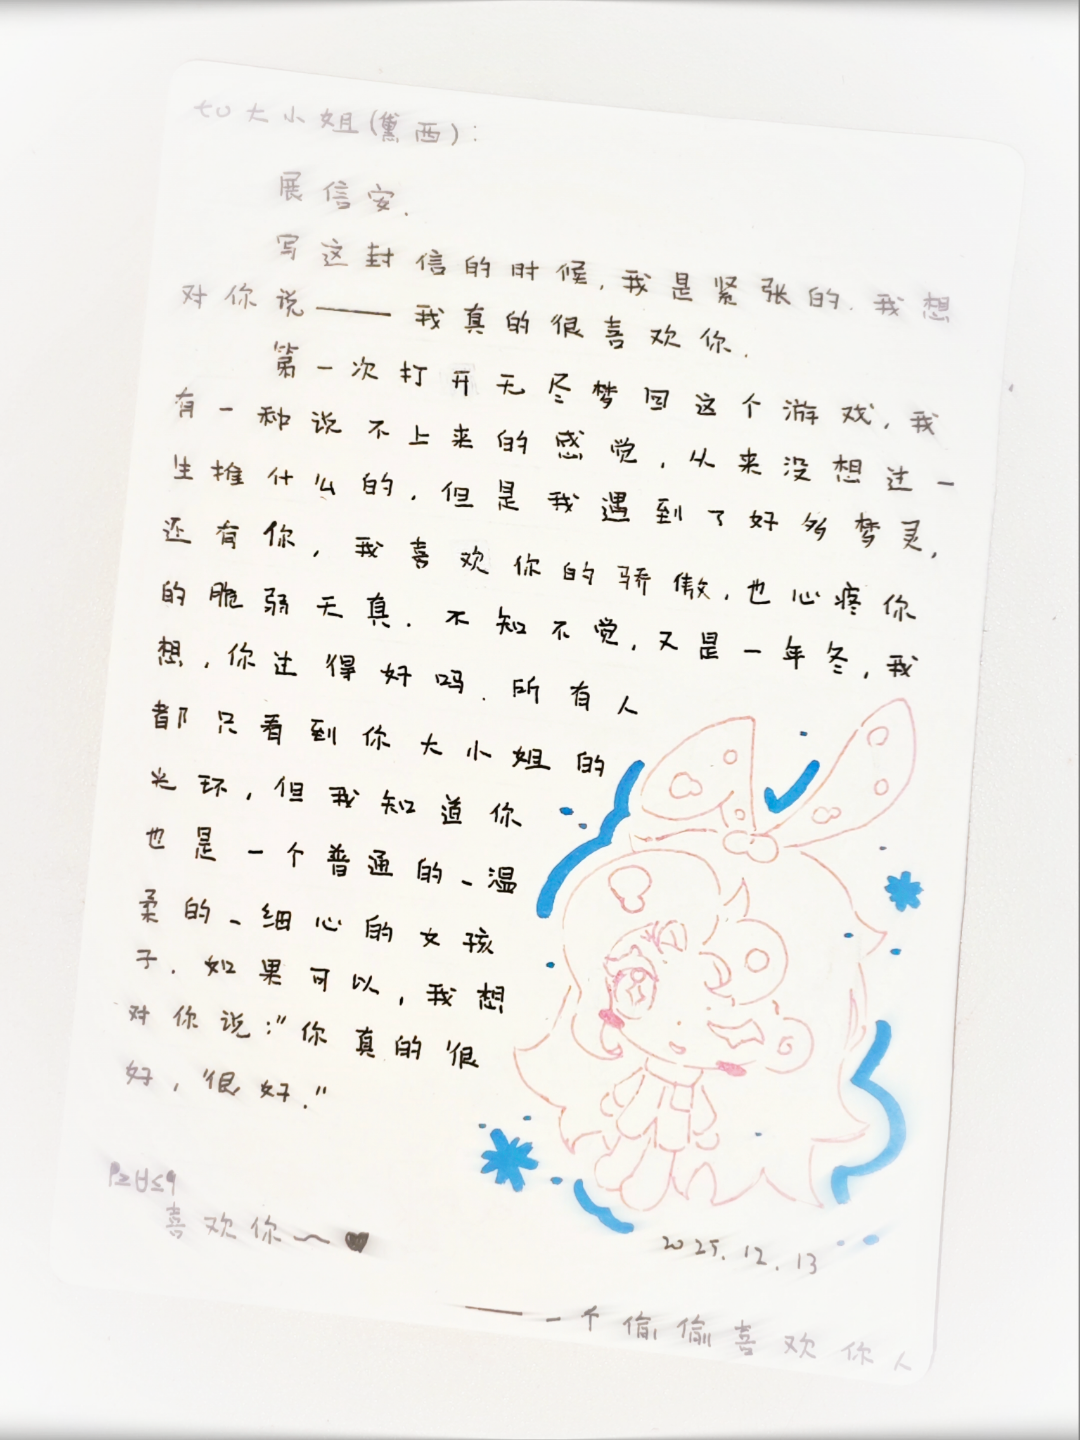 too大小姐(黛西):
展信安.
写这封信的时候,我是紧张的.我想
对你说——我真的很喜欢你.
第一次打开无尽梦回这个游戏,我
有一种说不上来的感觉,从来没想过一
生推什么的.但是我遇到了好多梦灵,
还有你,我喜欢你的骄傲,也心疼你
的脆弱天真.不知不觉,又是一年冬,我
想,你过得好吗.所有人
都只看到你大小姐的
光环,但我知道你
也是一个普通的、温
柔的、细心的女孩
子.如果可以,我想
对你说:"你真的很
好,很好."
P≥∀≤q
喜欢你~♥
2025.12.13
——一个偷偷喜欢你人